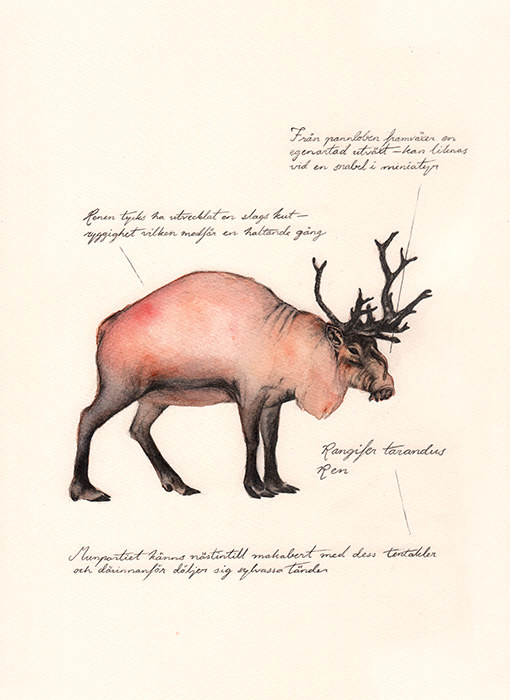 Från pannloben framväxer en
egenartad utväxt – kan liknas
vid en snabel i miniatyr
Renen tycks ha utvecklat en slags kut–
ryggighet vilken medför en haltande gång
Rangifer tarandus
Ren
Munpartiet känns nästintill makabert med dess tentakler
och därinnanför döljer sig sylvassa tänder